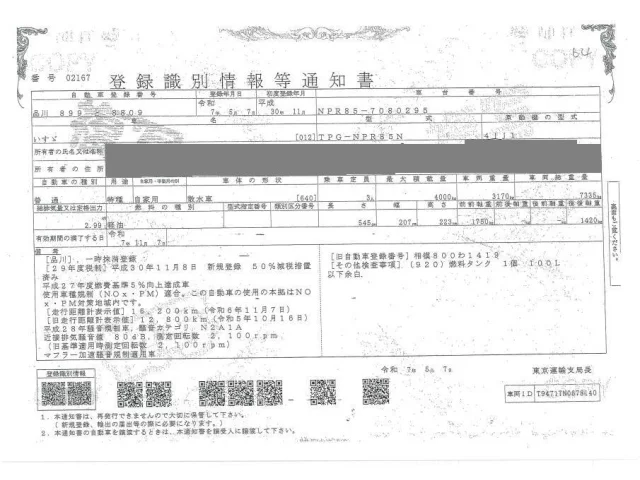 番号 02167 登録識別情報等通知書
自動車登録番号 登録年月日 初度登録年月 車台番号
品川 899 令和 7年 5月 7日 平成 30年 11月 NPR85-7080295
車名 型式 原動機の型式
いすゞ [012] TPG-NPR85N 4JJ1
所有者の氏名又は名称
所有者の住所
自動車の種別 用途 自家用・事業用の別 車体の形状 乗車定員 最大積載量 車両重量 車両総重量
普通 特種 自家用 散水車 [640] 3人 4000kg 3170kg 7335kg
総排気量又は定格出力 燃料の種類 型式指定番号 類別区分番号 長さ 幅 高さ 前前軸重 前後軸重 後前軸重 後後軸重
2.99 軽油 545cm 207cm 223cm 1750kg 1420kg
有効期間の満了する日 令和 7年 11月 7日
備考
[品川], 一時抹消登録
[29年度税制] 平成30年11月8日 新規登録 50%減税措置済み
平成27年度燃費基準5%向上達成車
使用車種規制(NOx・PM)適合, この自動車の使用の本拠はNOx・PM対策地域内です。
[走行距離計表示値] 16,200km(令和6年11月7日)
[旧走行距離計表示値] 12,800km(令和5年10月16日)
平成28年騒音規制車, 騒音カテゴリ N2A1A
近接排気騒音値 80dB, 測定回転数 2,100rpm
(旧基準適用時測定回転数 2,100rpm)
マフラー加速騒音規制適用車
[旧自動車登録番号] 相模800わ1419
[その他検査事項] (920) 燃料タンク 1個 100L
以下余白
裏面もご覧ください。
令和 7年 5月 7日 東京運輸支局長
登録識別情報
車両ID
1. 本通知書は、再発行できませんので大切に保管して下さい。
(新規登録、輸出の届出等の際に必要になります。)
2. 本通知書の自動車を譲渡するときは、本通知書を譲受人に譲渡して下さい。